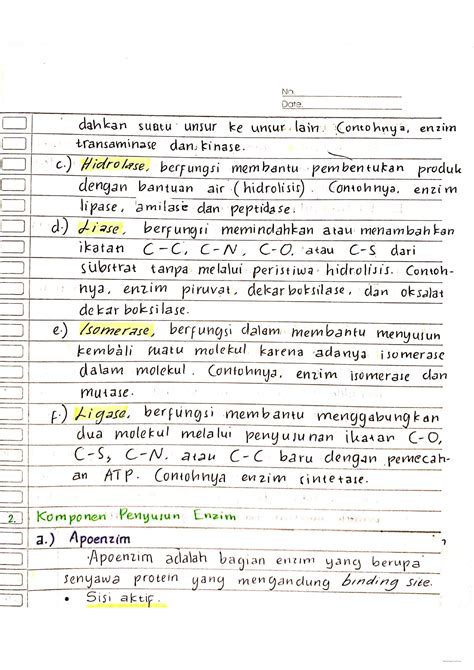 No.
Date.
dahkan suatu unsur ke unsur lain. Contohnya, enzim
transaminase dan kinase.
c.) Hidrolase, berfungsi membantu pembentukan produk
dengan bantuan air (hidrolisis). Contohnya, enzim
lipase, amilase dan peptidase.
d.) Liase, berfungsi memindahkan atau menambahkan
ikatan C-C, C-N, C-O, atau C-S dari
substrat tanpa melalui peristiwa hidrolisis. Contoh-
nya, enzim piruvat, dekarboksilase, dan oksalat
dekarboksilase.
e.) Isomerase, berfungsi dalam membantu menyusun
kembali suatu molekul karena adanya isomerase
dalam molekul. Contohnya, enzim isomerase dan
mutase.
f.) Ligase, berfungsi membantu menggabungkan
dua molekul melalui penyusunan ikatan C-O,
C-S, C-N, atau C-C baru dengan pemecah-
an ATP. Contohnya enzim sintetase.
2. Komponen Penyusun Enzim
a.) Apoenzim
Apoenzim adalah bagian enzim yang berupa
senyawa protein yang mengandung binding site.
• Sisi aktif.